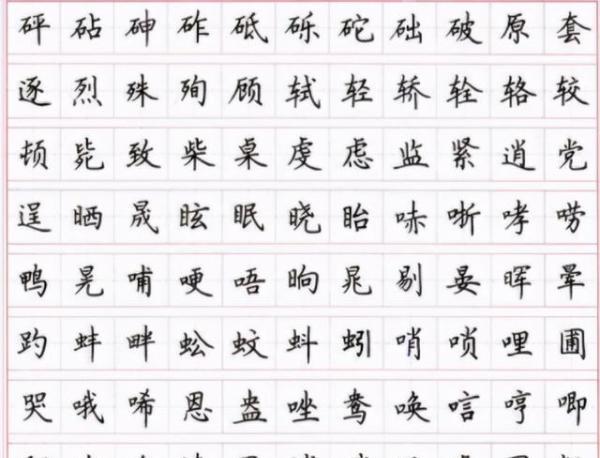 砰砧砷砟砥砾砣础破原套
逐烈殊殉顾轼轾轿辁辂较
顿毙致柴桌虔虑监紧逍党
逞晒晟眩眠晓眙哧哳哮唠
鸭晃哺哽唔晌晁剔晏晖晕
趵蚌畔蚣蚊蚪蚓哨唢哩圃
哭哦唏恩盎唑鸯唤唁哼唧